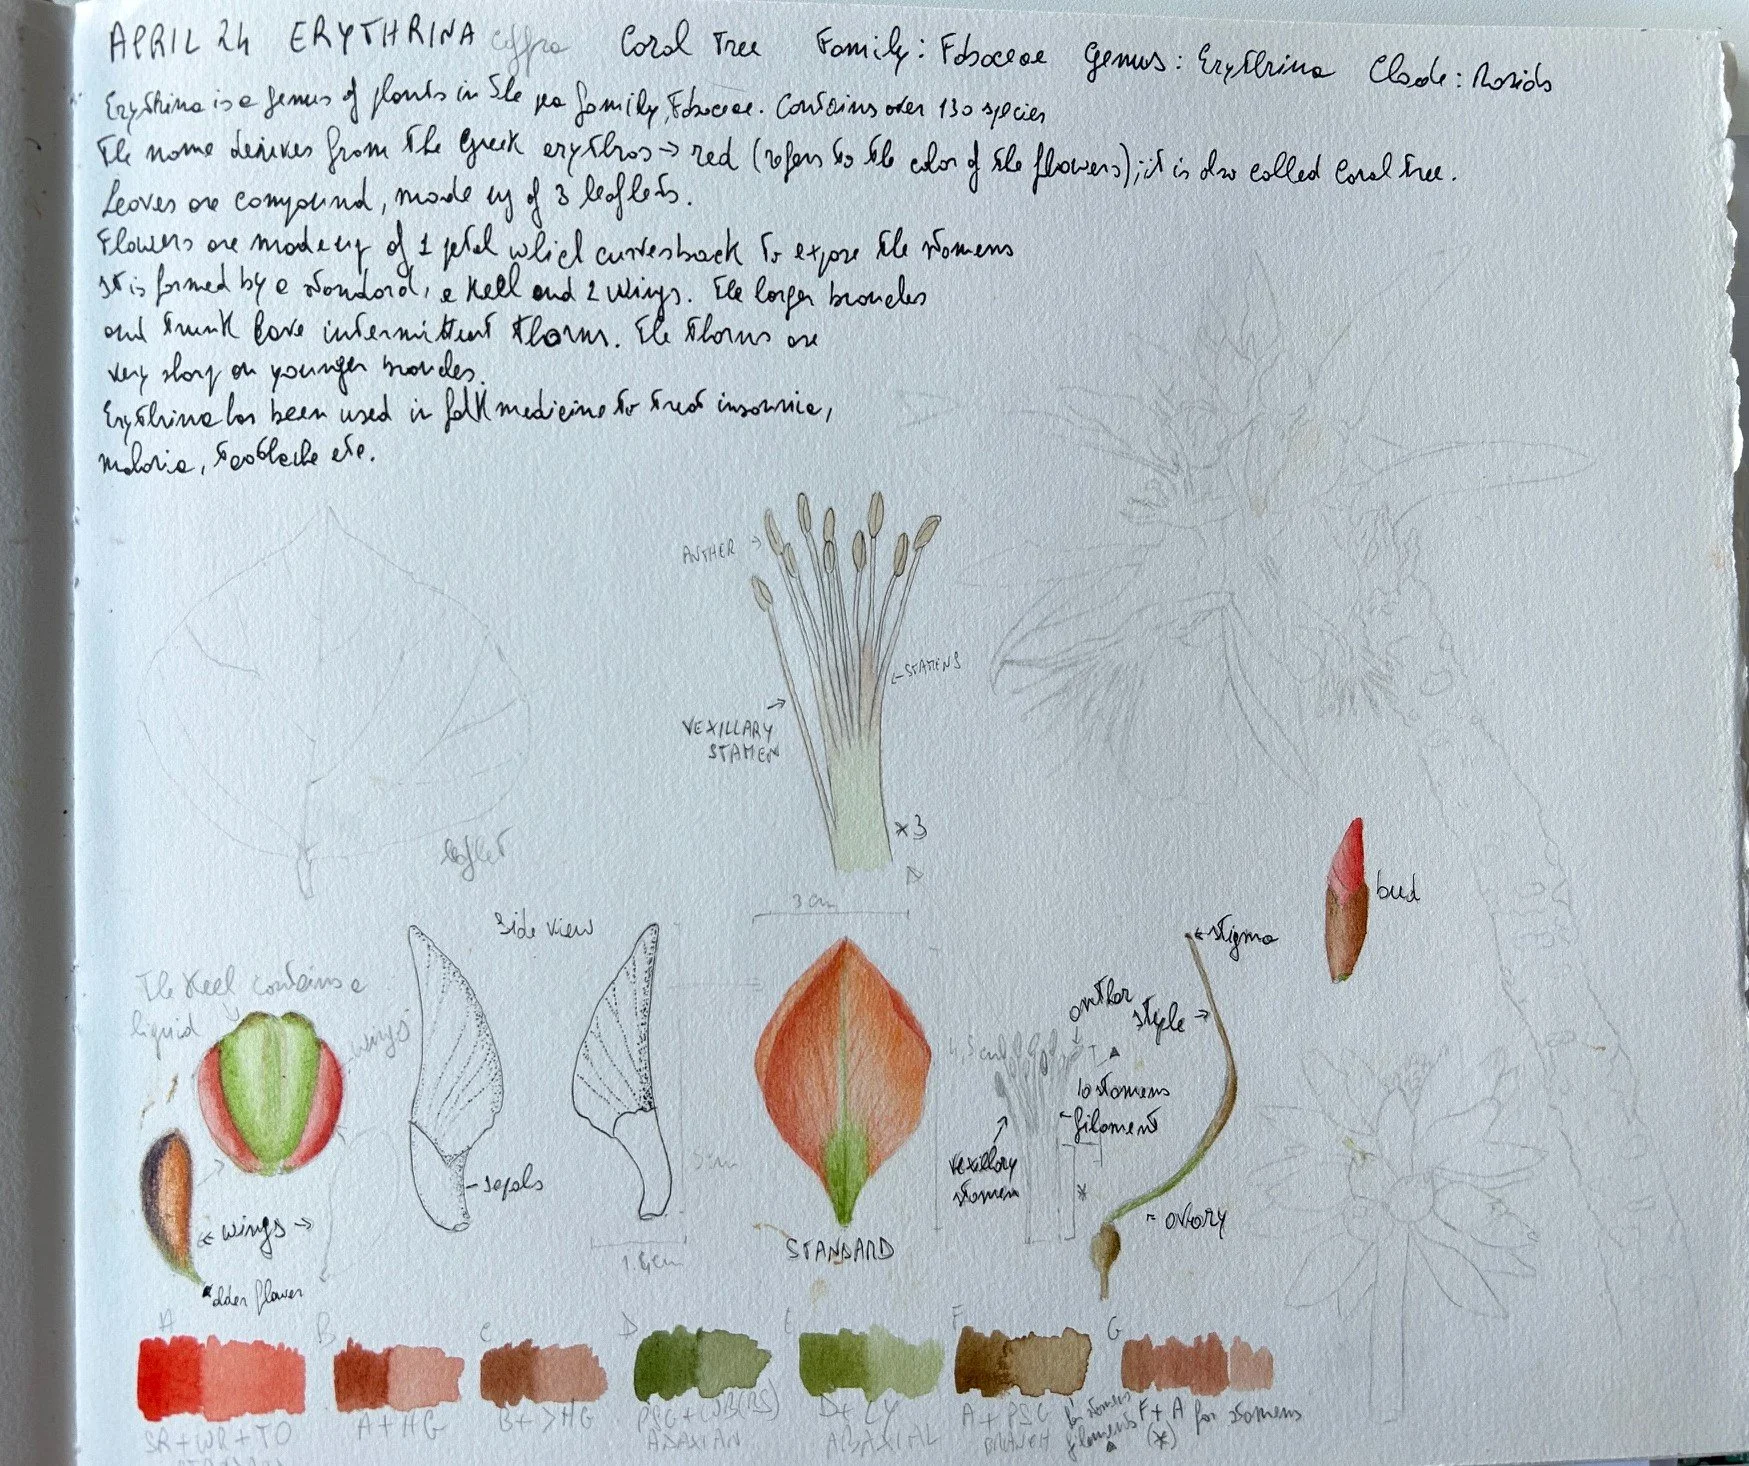 APRIL 24 ERYTHRINA caffra Coral Tree Family: Fabaceae Genus: Erythrina Clade: Rosids
Erythrina is a genus of plants in the pea family, Fabaceae. Contains over 130 species
The name derives from the Greek erythros → red (refers to the color of the flowers); it is also called Coral tree.
Leaves are compound, made up of 3 leaflets.
Flowers are made up of 1 petal which curves back to expose the stamens
It is formed by a standard, a Keel and 2 wings. The larger branches
and trunk have intermittent thorns. The thorns are
very sharp on younger branches.
Erythrina has been used in folk medicine to treat insomnia,
malaria, toothache etc.
ANTHER →
← STAMENS
VEXILLARY
STAMEN
×3
leaflet
3 cm
bud
Side view
← stigma
The Keel contains a
liquid
wings
anther
style →
10 stamens
← filament
vexillary
stamen
*
– sepals
5 cm
← ovary
← wings →
STANDARD
older flower
A B C D E F G
SR+WR+TO
A+HG
B+>HG
PSG+WB(RS)
ADAXIAN
D+LY
ABAXIAL
A+PSG
BRANCH
for stamens
filaments
F+A for stamens
(*)